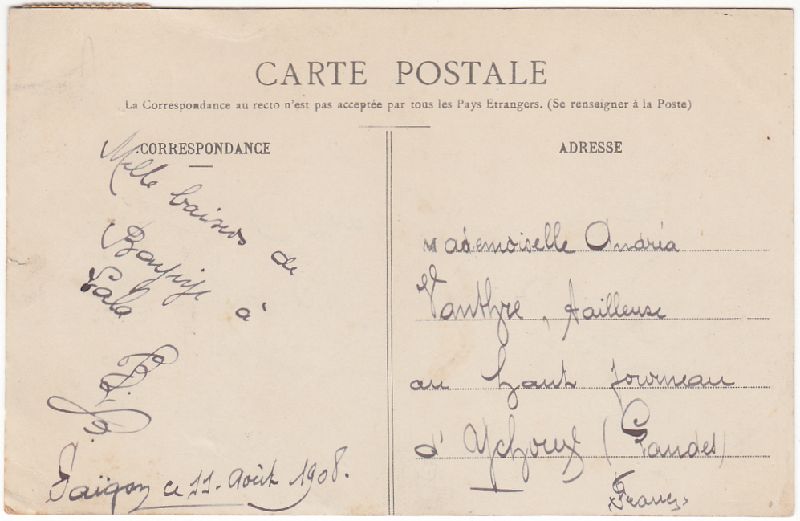 CARTE POSTALE
La Correspondance au recto n'est pas acceptée par tous les Pays Étrangers. (Se renseigner à la Poste)
CORRESPONDANCE
Mille baisers de
à
Lala
Saïgon ce 11 Août 1908.
ADRESSE
Mademoiselle Andréa
Tailleuse
au haut fourneau
d'Ychoux (Landes)
France